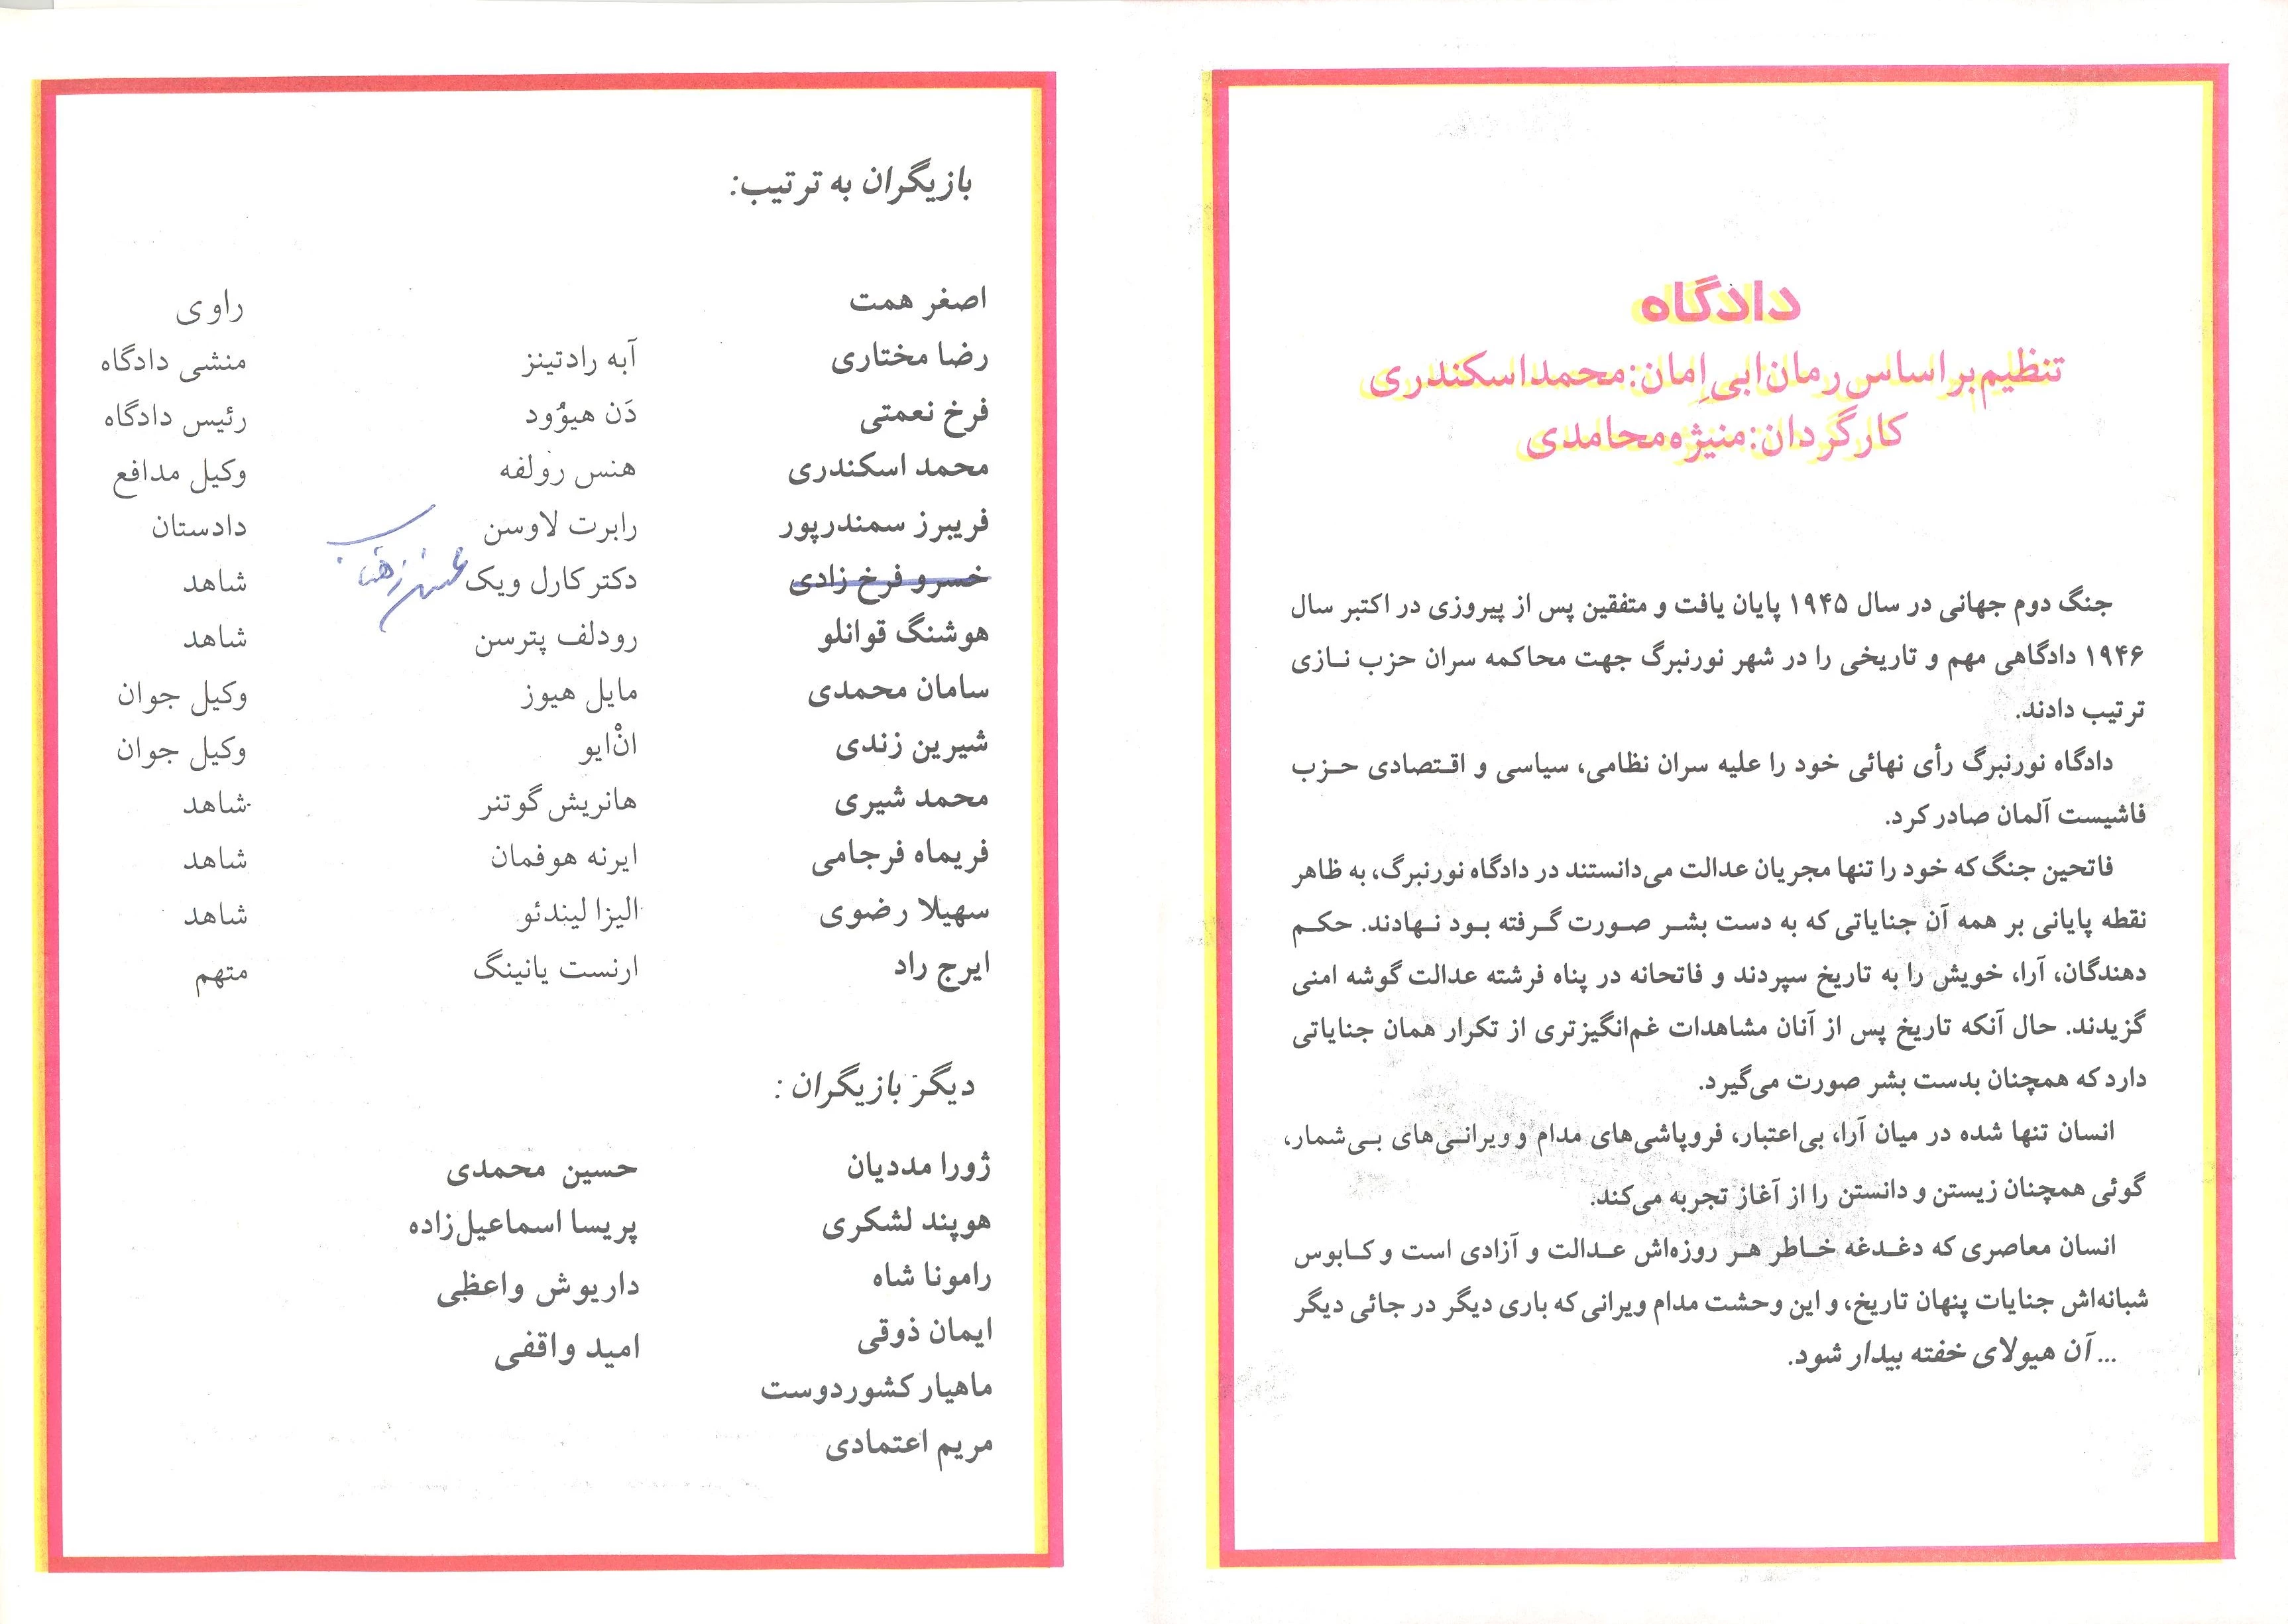 دادگاه
تنظیم بر اساس رمان ابی اِمان: محمد اسکندری
کارگردان: منیژه محامدی
جنگ دوم جهانی در سال ۱۹۴۵ پایان یافت و متفقین پس از پیروزی در اکتبر سال
۱۹۴۶ دادگاهی مهم و تاریخی را در شهر نورنبرگ جهت محاکمه سران حزب نازی
ترتیب دادند.
دادگاه نورنبرگ رأی نهائی خود را علیه سران نظامی، سیاسی و اقتصادی حزب
فاشیست آلمان صادر کرد.
فاتحین جنگ که خود را تنها مجریان عدالت می‌دانستند در دادگاه نورنبرگ، به ظاهر
نقطه پایانی بر همه آن جنایاتی که به دست بشر صورت گرفته بود نهادند. حکم
دهندگان، آرا، خویش را به تاریخ سپردند و فاتحانه در پناه فرشته عدالت گوشه امنی
گزیدند. حال آنکه تاریخ پس از آنان مشاهدات غم‌انگیزتری از تکرار همان جنایاتی
دارد که همچنان بدست بشر صورت می‌گیرد.
انسان تنها شده در میان آرا، بی‌اعتبار، فروپاشی‌های مدام و ویرانی‌های بی‌شمار،
گوئی همچنان زیستن و دانستن را از آغاز تجربه می‌کند.
انسان معاصری که دغدغه خاطر هر روزه‌اش عدالت و آزادی است و کابوس
شبانه‌اش جنایات پنهان تاریخ، و این وحشت مدام ویرانی که باری دیگر در جائی دیگر
... آن هیولای خفته بیدار شود.
بازیگران به ترتیب:
اصغر همت راوی
رضا مختاری آبه رادتینز منشی دادگاه
فرخ نعمتی دَن هیوُود رئیس دادگاه
محمد اسکندری هنس رولفه وکیل مدافع
فریبرز سمندرپور رابرت لاوسن دادستان
خسرو فرخ زادی دکتر کارل ویک شاهد
هوشنگ قوانلو رودلف پترسن شاهد
سامان محمدی مایل هیوز وکیل جوان
شیرین زندی انْ‌ایو وکیل جوان
محمد شیری هانریش گوتنر شاهد
فریماه فرجامی ایرنه هوفمان شاهد
سهیلا رضوی الیزا لیندئو شاهد
ایرج راد ارنست یانینگ متهم
دیگر بازیگران :
ژورا مددیان حسین محمدی
هوپند لشکری پریسا اسماعیل‌زاده
رامونا شاه داریوش واعظی
ایمان ذوقی امید واقفی
ماهیار کشوردوست
مریم اعتمادی